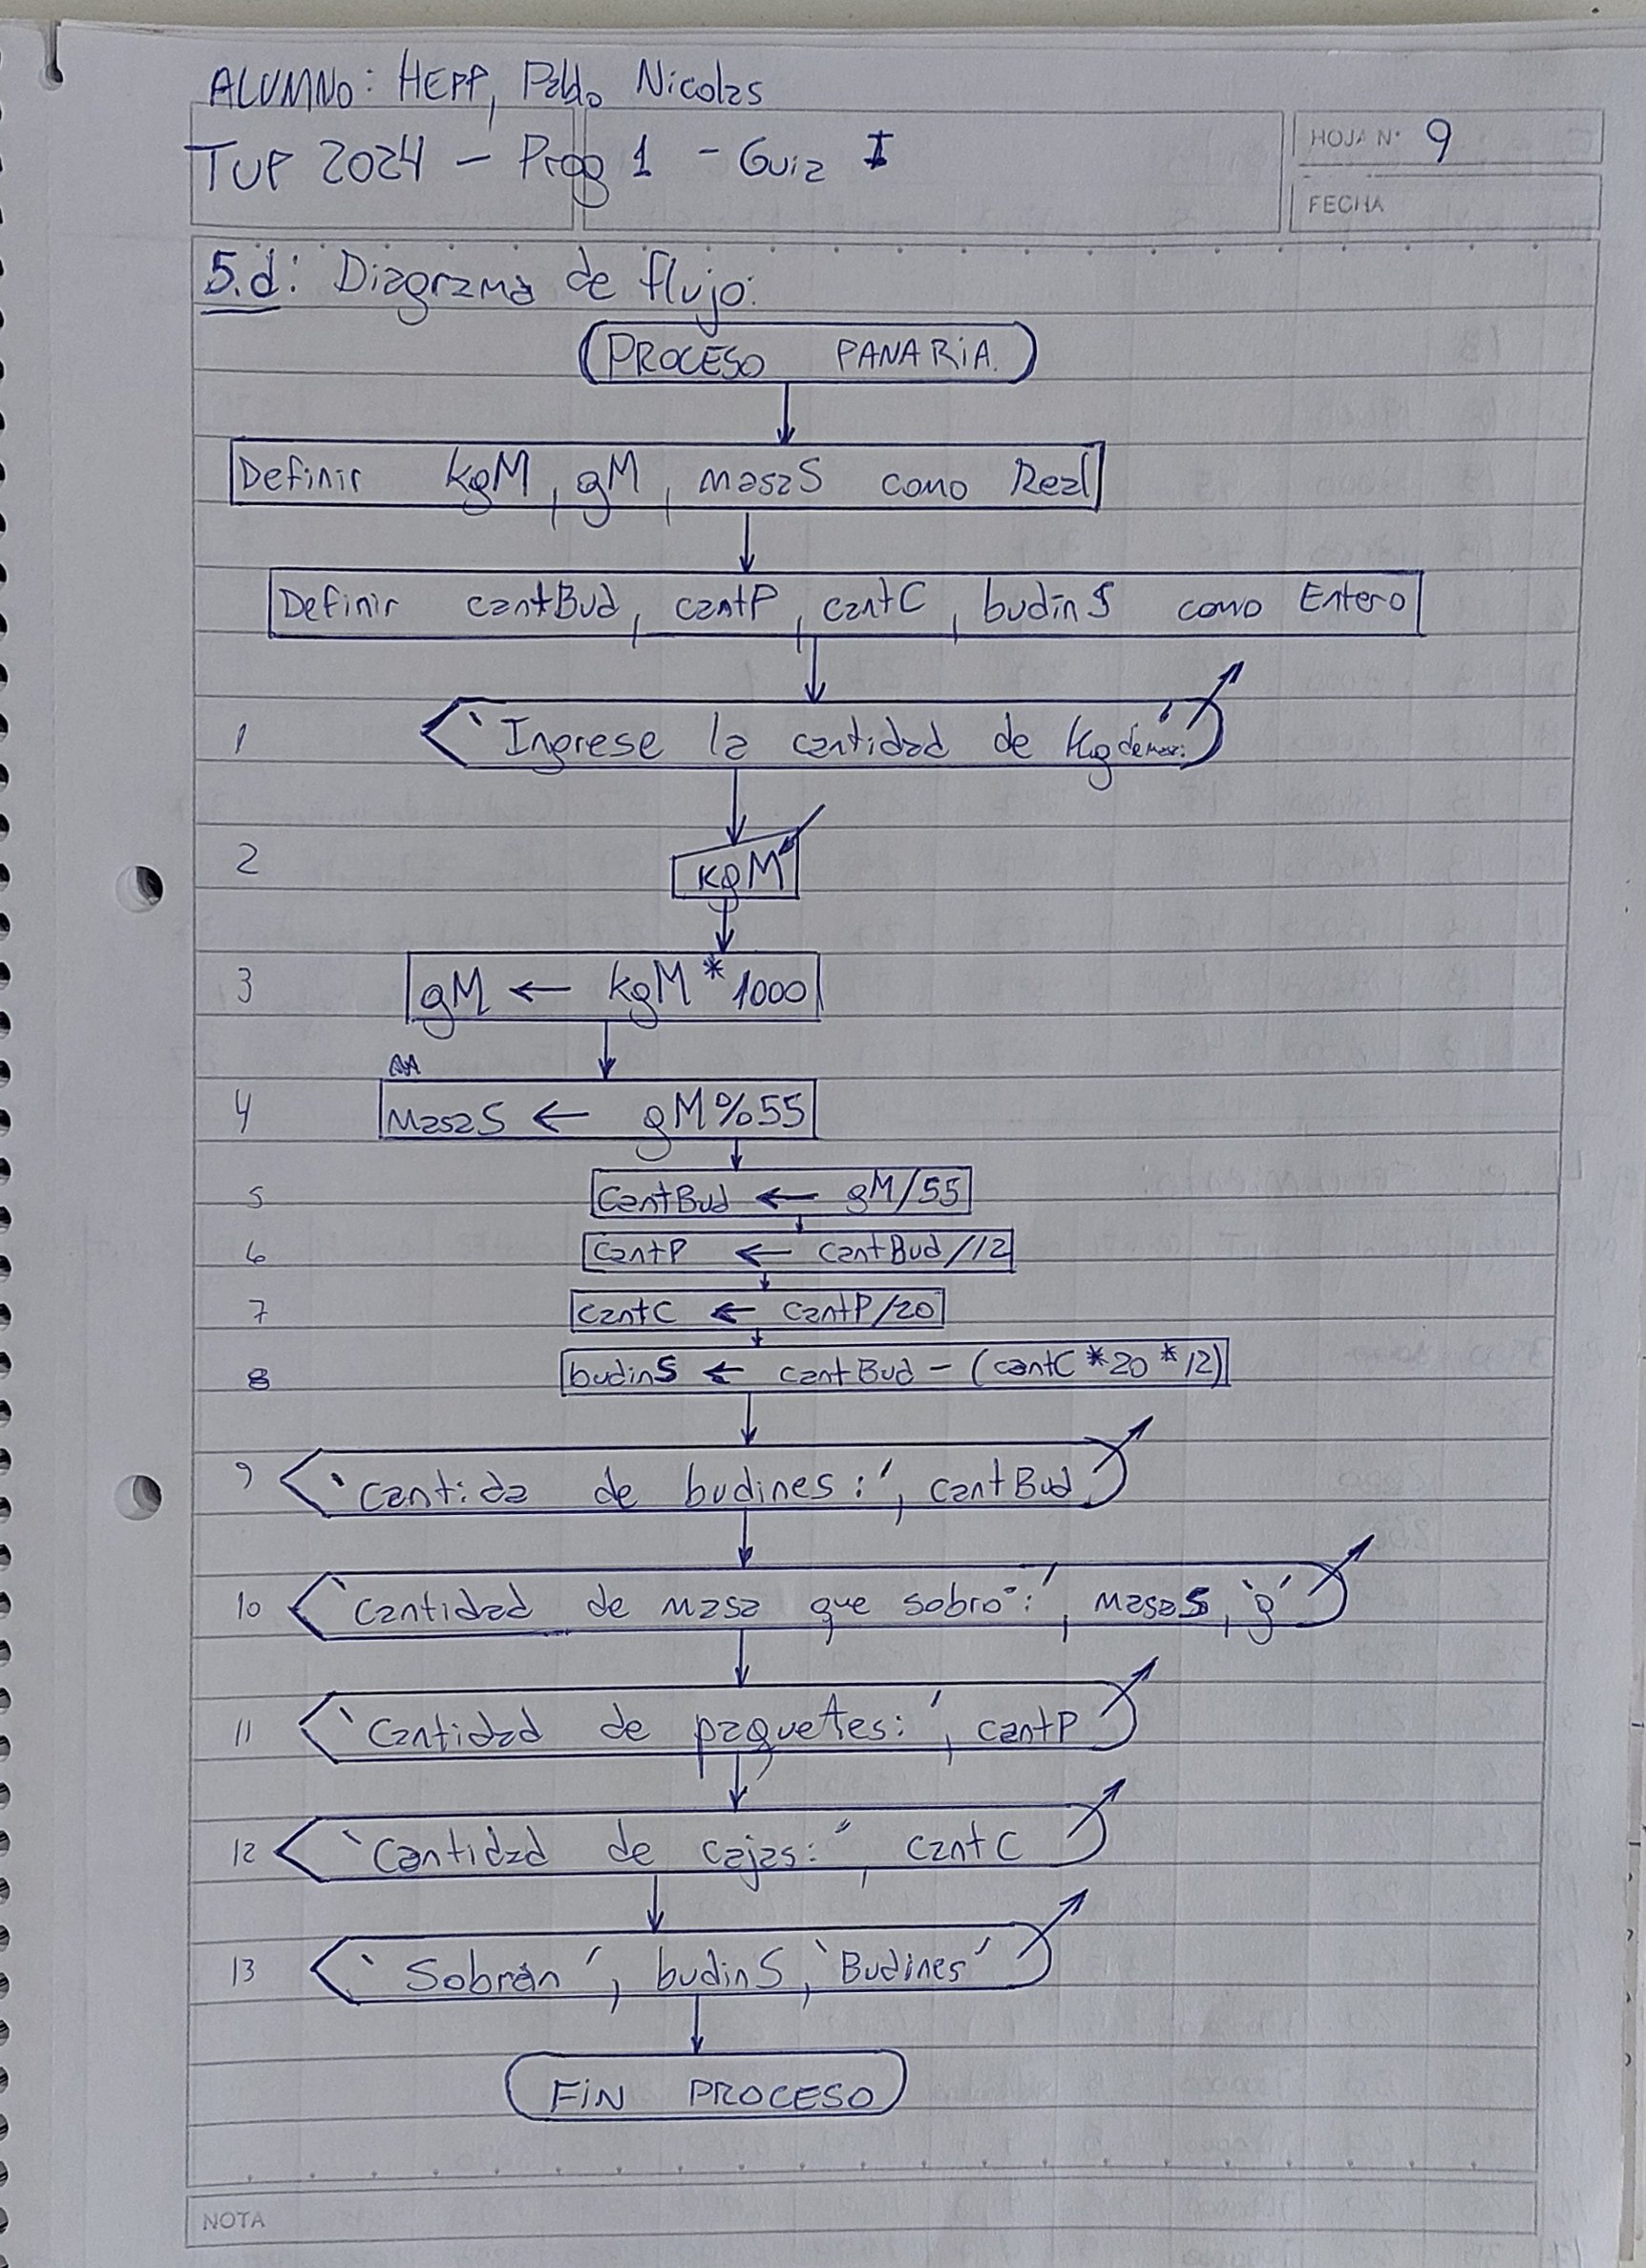 ALUMNO: HEPP, Pablo Nicolas
TUP 2024 - Prog 1 - Guia I
HOJA N° 9
FECHA
5.d: Diagrama de flujo:
PROCESO PANARIA
Definir kgM, gM, masaS como Real
Definir cantBud, cantP, cantC, budinS como Entero
1 'Ingrese la cantidad de Kg de
2 KgM
3 gM ← kgM * 1000
4 masaS ← gM%55
5 CantBud ← gM/55
6 CantP ← cantBud/12
7 cantC ← cantP/20
8 budinS ← cantBud - (cantC * 20 * 12)
9 'Cantida de budines:', cantBud
10 'Cantidad de masa que sobro:', masaS, 'g'
11 'Cantidad de paquetes:', cantP
12 'Cantidad de cajas:', cantC
13 'Sobrán', budinS, 'Budines'
FIN PROCESO
NOTA